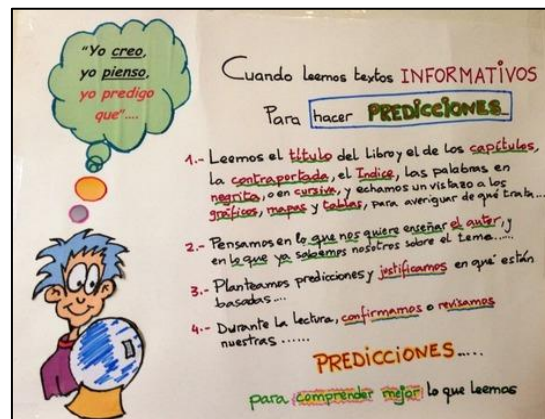 "Yo creo,
yo pienso,
yo predigo
que"....
Cuando leemos textos INFORMATIVOS
Para hacer PREDICCIONES
1.- Leemos el título del Libro y el de los capítulos,
la contraportada, el Indice, las palabras en
negrita, o en cursiva, y echamos un vistazo a los
gráficos, mapas y tablas, para averiguar de qué trata...
2.- Pensamos en lo que nos quiere enseñar el autor, y
en lo que ya sabemos nosotros sobre el tema......
3.- Planteamos predicciones y justificamos en qué están
basadas....
4.- Durante la lectura, confirmamos o revisamos
nuestras ......
PREDICCIONES....
para comprender mejor lo que leemos